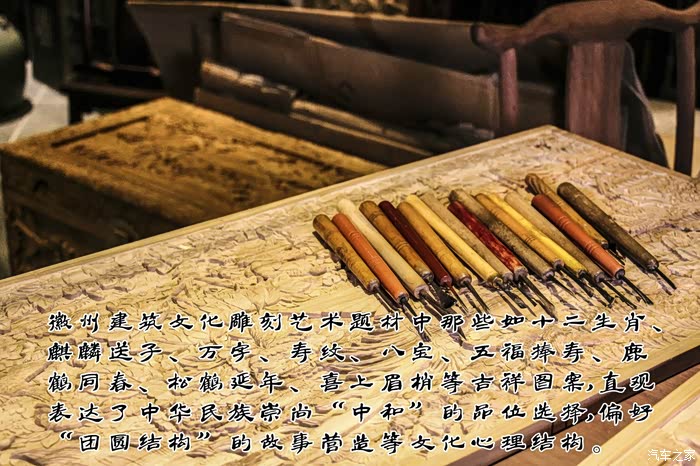 徽州建筑文化雕刻艺术题材中那些如十二生肖、
麒麟送子、万字、寿纹、八宝、五福捧寿、鹿
鹤同春、松鹤延年、喜上眉梢等吉祥图案,直观
表达了中华民族崇尚“中和”的品位选择,偏好
“团圆结构”的故事营造等文化心理结构。
汽车之家